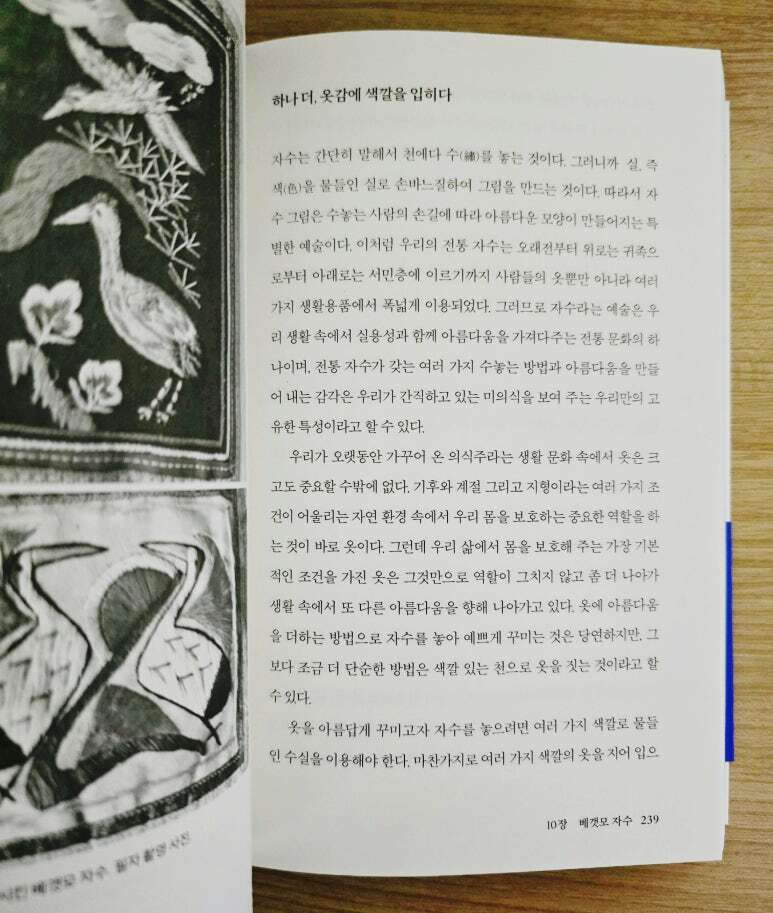 하나 더, 옷감에 색깔을 입히다
자수는 간단히 말해서 천에다 수(繡)를 놓는 것이다. 그러니까 실, 즉
색(色)을 물들인 실로 손바느질하여 그림을 만드는 것이다. 따라서 자
수 그림은 수놓는 사람의 손길에 따라 아름다운 모양이 만들어지는 특
별한 예술이다. 이처럼 우리의 전통 자수는 오래전부터 위로는 귀족으
로부터 아래로는 서민층에 이르기까지 사람들의 옷뿐만 아니라 여러
가지 생활용품에서 폭넓게 이용되었다. 그러므로 자수라는 예술은 우
리 생활 속에서 실용성과 함께 아름다움을 가져다주는 전통 문화의 하
나이며, 전통 자수가 갖는 여러 가지 수놓는 방법과 아름다움을 만들
어 내는 감각은 우리가 간직하고 있는 미의식을 보여 주는 우리만의 고
유한 특성이라고 할 수 있다.
우리가 오랫동안 가꾸어 온 의식주라는 생활 문화 속에서 옷은 크
고도 중요할 수밖에 없다. 기후와 계절 그리고 지형이라는 여러 가지 조
건이 어울리는 자연 환경 속에서 우리 몸을 보호하는 중요한 역할을 하
는 것이 바로 옷이다. 그런데 우리 삶에서 몸을 보호해 주는 가장 기본
적인 조건을 가진 옷은 그것만으로 역할이 그치지 않고 좀 더 나아가
생활 속에서 또 다른 아름다움을 향해 나아가고 있다. 옷에 아름다움
을 더하는 방법으로 자수를 놓아 예쁘게 꾸미는 것은 당연하지만, 그
보다 조금 더 단순한 방법은 색깔 있는 천으로 옷을 짓는 것이라고 할
수 있다.
옷을 아름답게 꾸미고자 자수를 놓으려면 여러 가지 색깔로 물들
인 수실을 이용해야 한다. 마찬가지로 여러 가지 색깔의 옷을 지어 입으
10장 베갯모 자수 239
베갯모 자수. 필자 촬영 사진